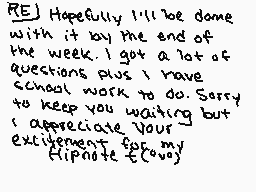 RE] Hopefully I'll be dome
with it by the end of
the week. I got a lot of
questions plus I have
school work to do. Sorry
to keep you waiting but
i appreciate your
excitement for my
Hipnote t(ovo)